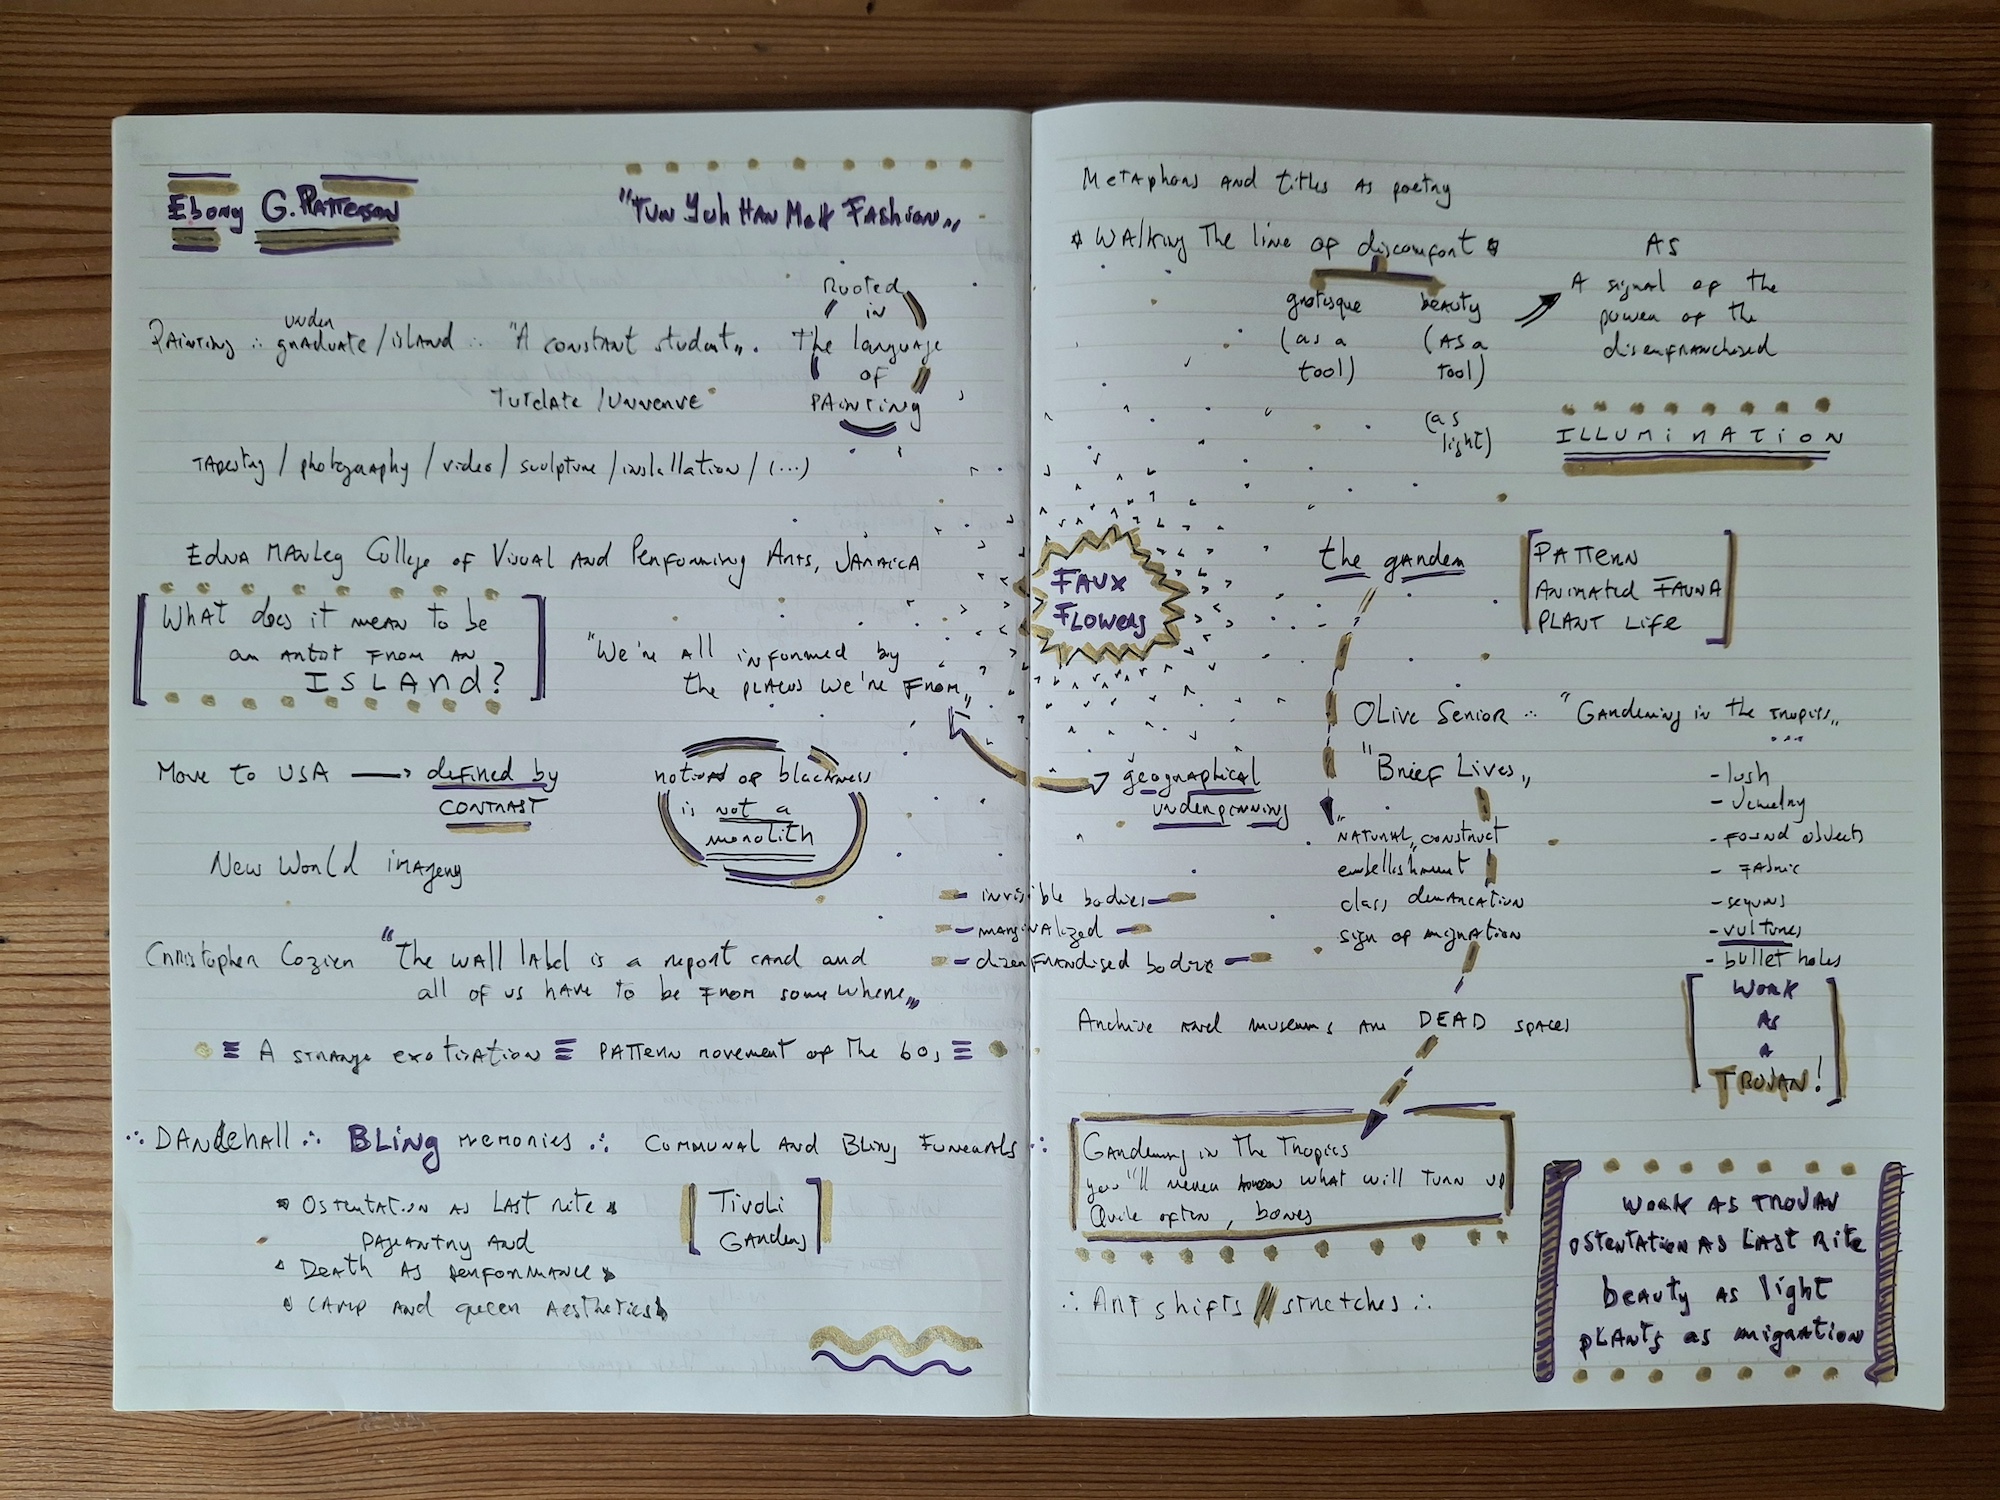 Ebony G. Patterson
"Tun Yuh Han Mek Fashion"
Painting ∴ under graduate / island ∴ "A constant student".
Rooted
in
The language
of
PAINTING
Tapestry / photography / video / sculpture / installation / (...)
Edna Manley College of Visual and Performing Arts, Jamaica
What does it mean to be
an artist from an
ISLAND?
"We're all informed by
the places we're from"
Move to USA → defined by
CONTRAST
notion of blackness
is not a
monolith
New World imagery
Christopher Cozier "The wall label is a report card and
all of us have to be from somewhere"
A strange exotisation ≡ Pattern movement of the 60s
∴ DANCEHALL ∴ BLING memories ∴ Communal and Bling Funerals ∴
Ostentation as last rite
pageantry and
Death as performance
camp and queer aesthetics
Tivoli
Gardens
Metaphors and titles as poetry
* Walking the line of discomfort *
grotesque
(as a
tool)
beauty
(as a
tool)
(as
light)
AS
A signal of the
power of the
disenfranchised
ILLUMINATION
FAUX
FLOWERS
the garden
PATTERN
ANIMATED FAUNA
PLANT LIFE
Olive Senior ∴ "Gardening in the Tropics"
"Brief Lives"
geographical
underpinning
"NATURAL" construct
embellishment
class demarcation
sign of migration
- lush
- jewelry
- found objects
- fabric
- sequins
- vultures
- bullet holes
- invisible bodies -
- marginalized -
- disenfrandised bodies -
Archive and museums are DEAD spaces
WORK
AS
A
TROJAN!
Gardening in the Tropics
you'll never know what will turn up
Quite often, bones
∴ Art shifts // stretches ∴
WORK AS TROJAN
OSTENTATION AS LAST RITE
beauty as light
plants as migration